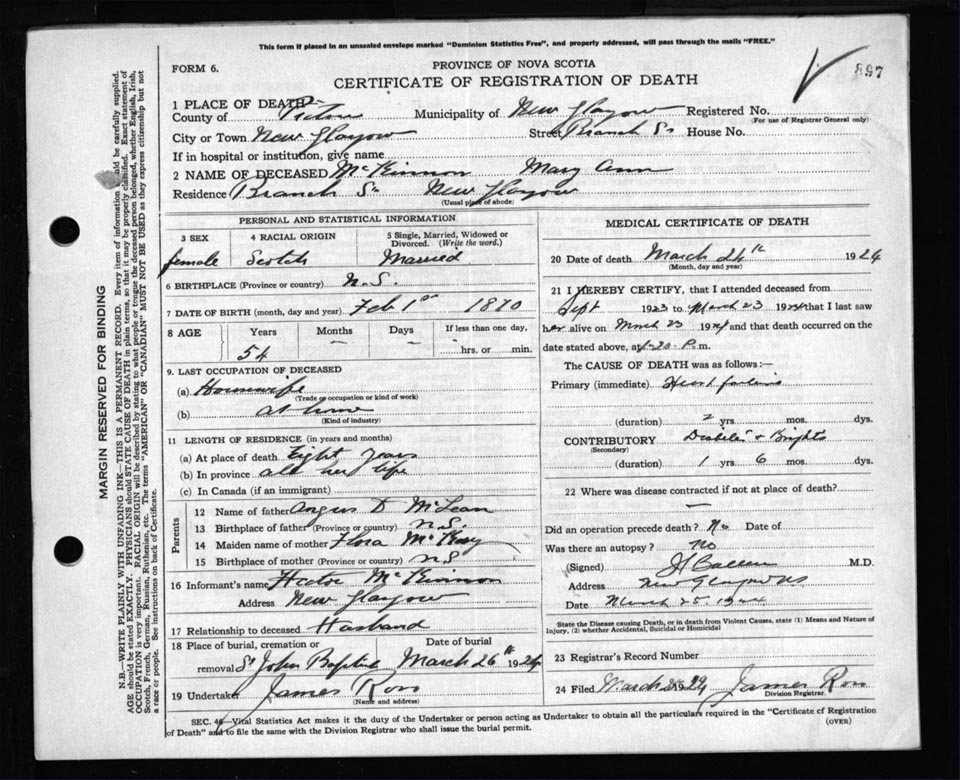 This form if placed in an unsealed envelope marked "Dominion Statistics Free", and properly addressed, will pass through the mails "FREE."
FORM 6.
PROVINCE OF NOVA SCOTIA
CERTIFICATE OF REGISTRATION OF DEATH
897
1 PLACE OF DEATH—
County of Pictou Municipality of New Glasgow Registered No.
(For use of Registrar General only)
City or Town New Glasgow Street Branch St House No.
If in hospital or institution, give name
2 NAME OF DECEASED McKinnon Mary Ann
Residence Branch St New Glasgow
(Usual place of abode)
PERSONAL AND STATISTICAL INFORMATION
3 SEX 4 RACIAL ORIGIN 5 Single, Married, Widowed or Divorced. (Write the word.)
female Scotch Married
6 BIRTHPLACE (Province or country) N.S.
7 DATE OF BIRTH (month, day and year) Feb 1st 1870
8 AGE Years Months Days If less than one day,
54 hrs. or min.
9. LAST OCCUPATION OF DECEASED
(a) Housewife
(Trade or occupation or kind of work)
(b) at home
(Kind of industry)
11 LENGTH OF RESIDENCE (in years and months)
(a) At place of death Eight years
(b) In province all her life
(c) In Canada (if an immigrant)
Parents
12 Name of father Angus D McLean
13 Birthplace of father (Province or country) N.S.
14 Maiden name of mother Flora McKay
15 Birthplace of mother (Province or country) N S
16 Informant's name Hector McKinnon
Address New Glasgow
17 Relationship to deceased Husband
18 Place of burial, cremation or removal Date of burial
St John Baptist March 26th 1924
19 Undertaker James Ross
(Name and address)
MEDICAL CERTIFICATE OF DEATH
20 Date of death March 24th 1924
(Month, day and year)
21 I HEREBY CERTIFY, that I attended deceased from
Sept 1923 to March 23 1924 that I last saw
her alive on March 23 1924 and that death occurred on
date stated above, at 1-20 P.m.
The CAUSE OF DEATH was as follows:—
Primary (immediate) Heart failure
(duration) 2 yrs mos. dys.
CONTRIBUTORY Diabetes + Brights
(Secondary)
(duration) 1 yrs 6 mos. dys.
22 Where was disease contracted if not at place of death?
—
Did an operation precede death? No Date of
Was there an autopsy? no
(Signed) M.D.
Address New Glasgow NS
Date March 25. 1924
State the Disease causing Death, or in death from Violent Causes, state (1) Means and Nature of Injury, (2) whether Accidental, Suicidal or Homicidal
23 Registrar's Record Number
24 Filed March 1924 James Ross
Division Registrar.
SEC. 46—Vital Statistics Act makes it the duty of the Undertaker or person acting as Undertaker to obtain all the particulars required in the "Certificate of Registration
of Death" and to file the same with the Division Registrar who shall issue the burial permit.
(OVER)
MARGIN RESERVED FOR BINDING
N.B.—WRITE PLAINLY WITH UNFADING INK—THIS IS A PERMANENT RECORD. Every item of information should be carefully supplied.
AGE should be stated EXACTLY. PHYSICIANS should STATE CAUSE OF DEATH in plain terms, so that it may be properly classified. Exact statement of
OCCUPATION is very important. RACIAL ORIGIN will be described by stating to what people or tongue the deceased person belonged, whether English, Irish,
Scotch, French, German, Russian, Ruthenian, etc. The terms "AMERICAN" OR "CANADIAN" MUST NOT BE USED as they express citizenship but not
a race or people. See instructions on back of Certificate.